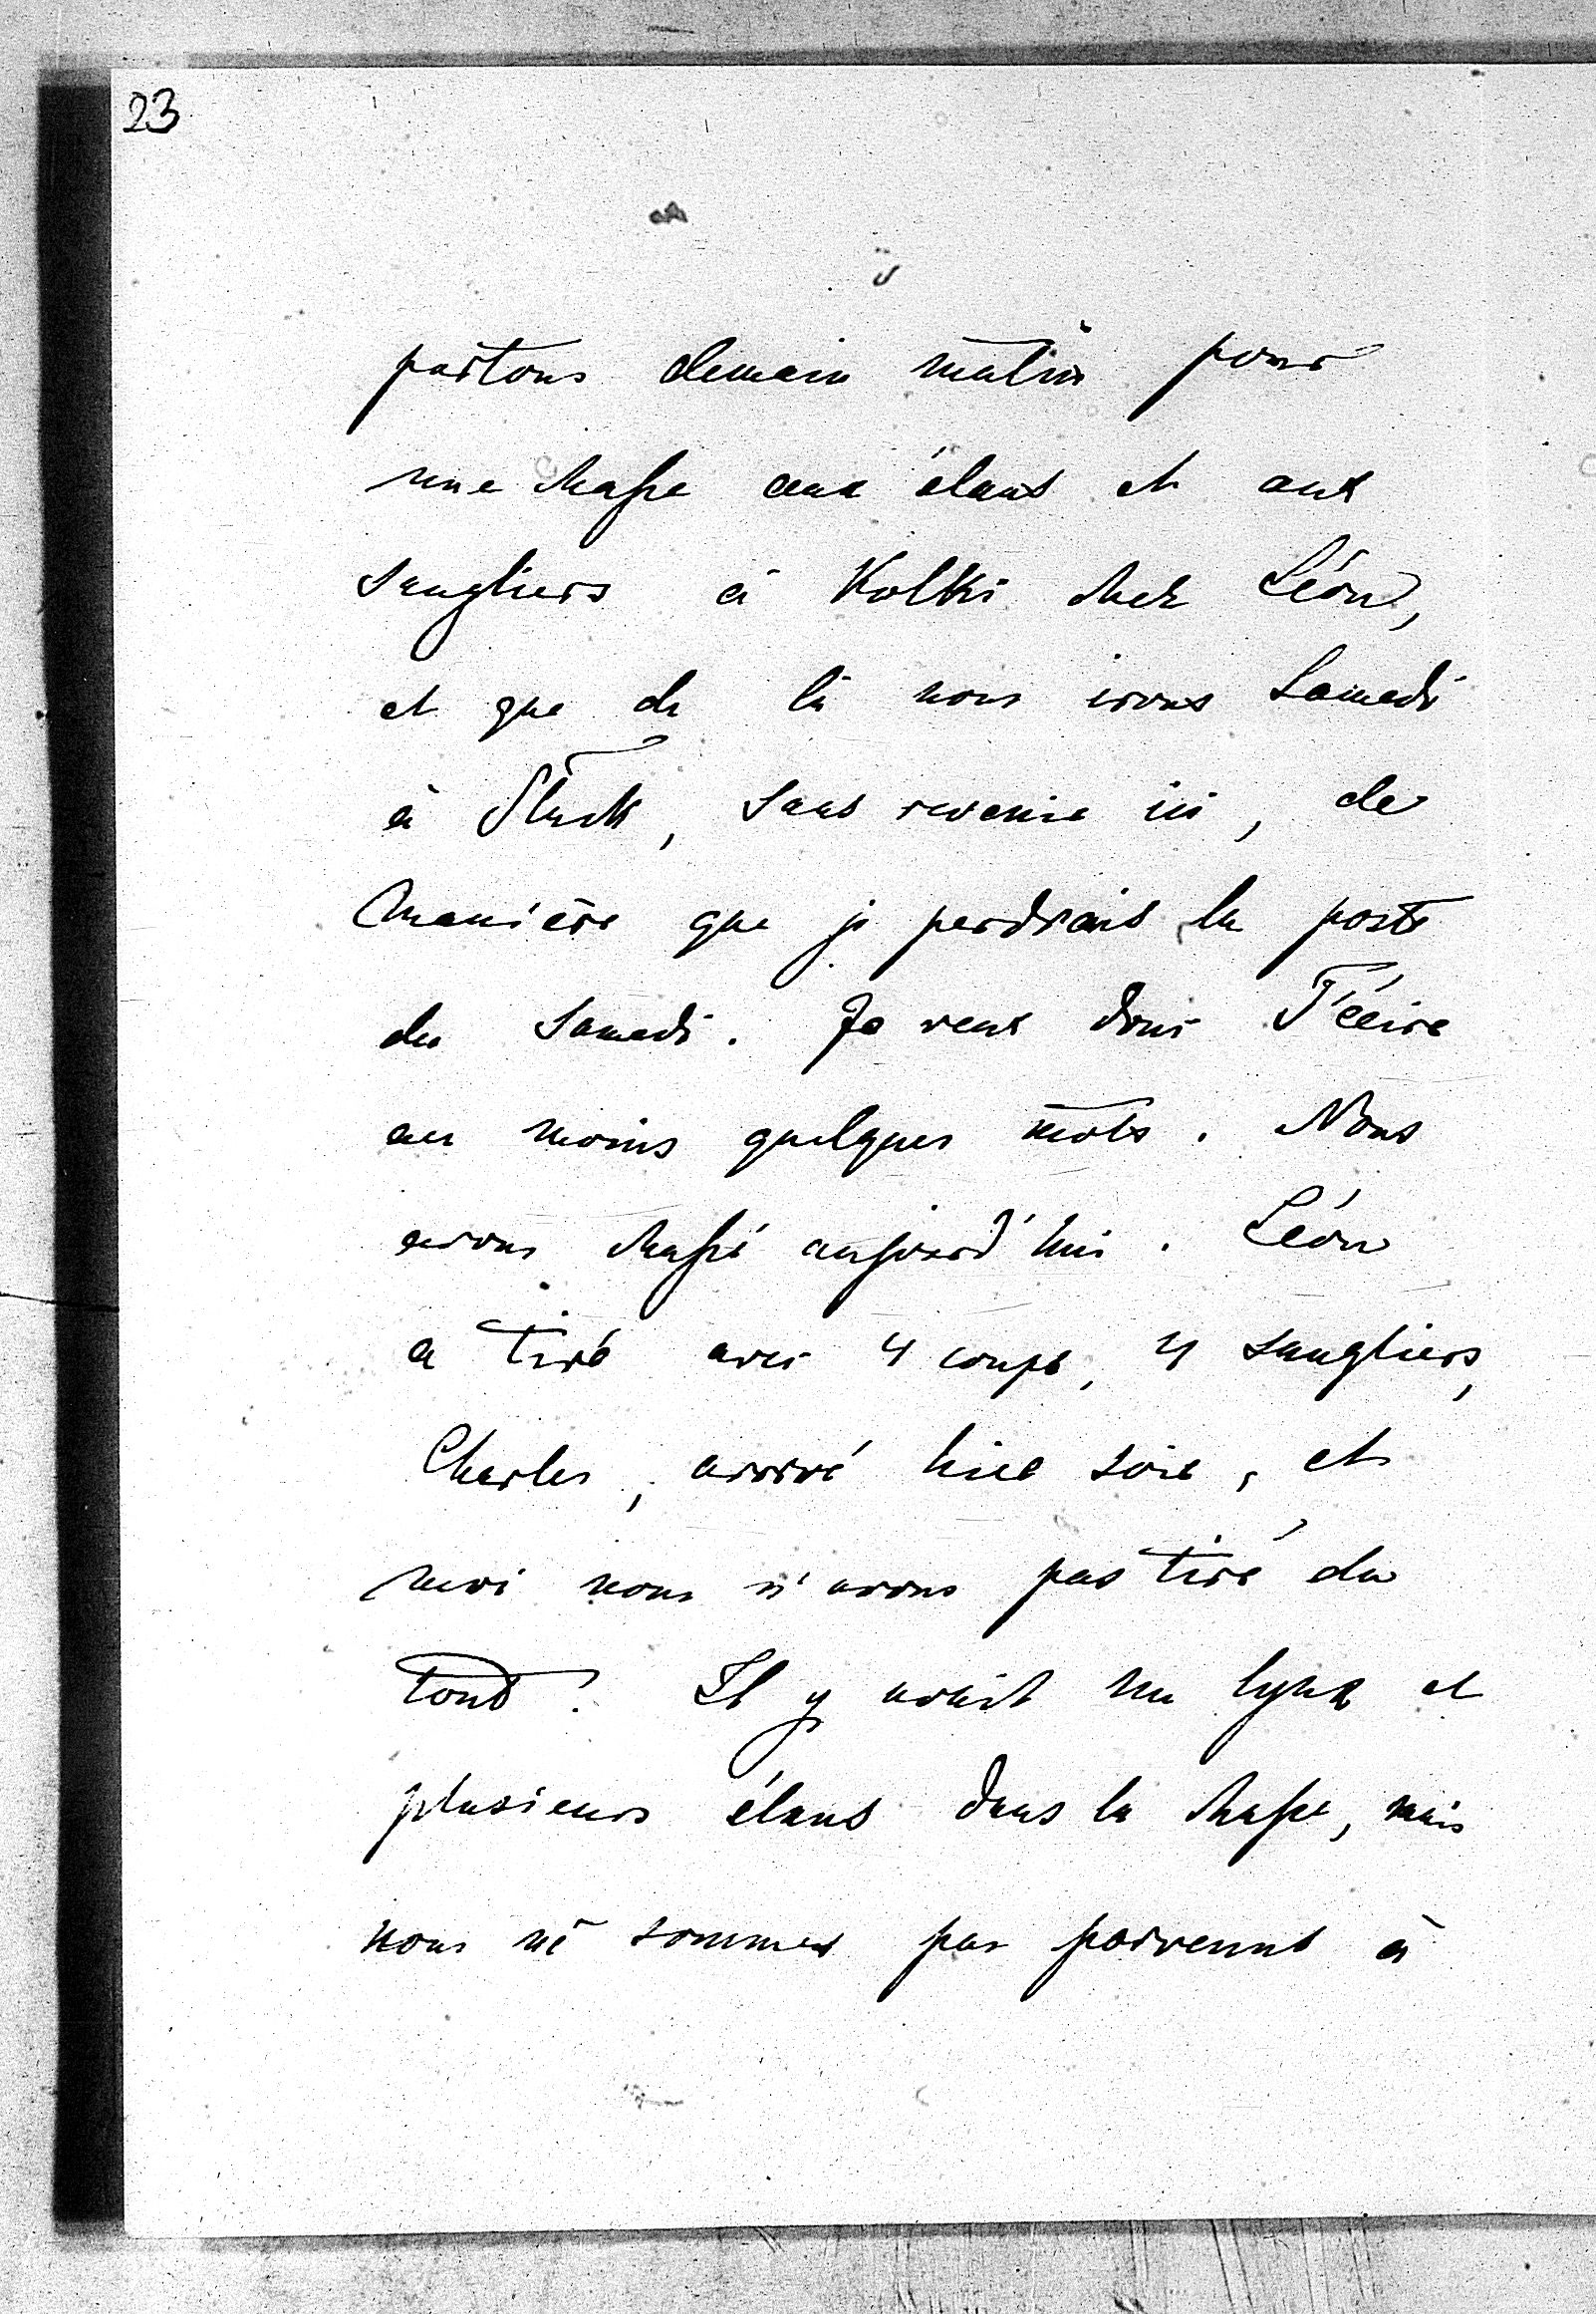 23
partons demain matin pour
une chasse aux élans et aux
sangliers à Kolki chez Léon,
et que de là nous irons Samedi
à Sluck, sans revenir ici, de
manière que je perdrais la poste
du Samedi. Je veux donc T'écrire
au moins quelques mots. Nous
avons chassé aujourd'hui. Léon
a tiré avec 4 coups, 4 sangliers,
Charles, arrivé hier soir, et
moi nous n'avons pas tiré du
tout! Il y avait un lynx et
plusieurs élans dans la chasse, mais
nous ne sommes pas parvenus à